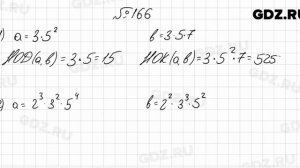 GDZ.RU
№166
) a = 3·5² b = 3·5·7
НОД(a, b) = 3·5 = 15 НОК(a, b) = 3·5²·7 = 525
) a = 2³·3²·5⁴ b = 2²·3³·5²